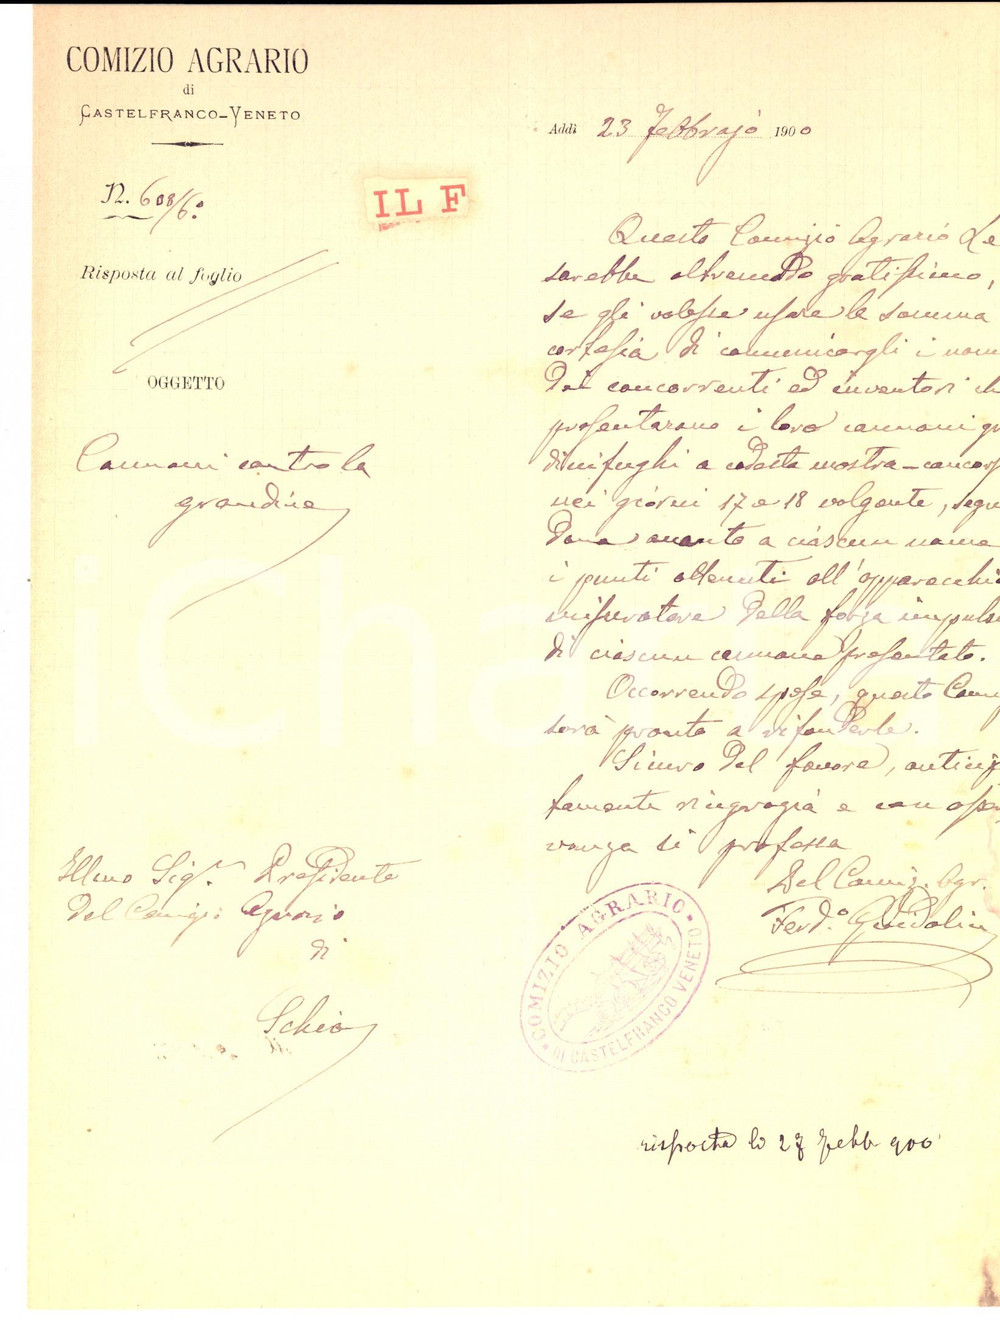 COMIZIO AGRARIO
di
CASTELFRANCO-VENETO
Addì 23 Febbrajo 1900
N. 608/6o
IL F
Risposta al foglio
OGGETTO
Cannoni contro la
grandine
Questo Comizio Agrario Le
sarebbe oltremodo gratissimo,
se gli volesse usare la somma
cortesia di comunicargli i nom
dei concorrenti ed inventori ch
presentarono i loro cannoni gr
dinifughi a codesta mostra-concors
nei giorni 17 e 18 volgente, segn
dono accanto a ciascun nome
i punti ottenuti all'apparecchio
misuratore della forza impuls
di ciascun cannone presentato.
Occorrendo spese, questo Com
sarà pronto a rifonderle.
Sicuro del favore, anticip
tamente ringrazia e con osse
vanza si professa
Del Comiz. Agr.
Ferd.o Guidolin
Illmo Sigr. Presidente
del Comizio Agrario
di
Schio
COMIZIO AGRARIO
DI CASTELFRANCO VENETO
risposta lo 27 Febb 900
iCha